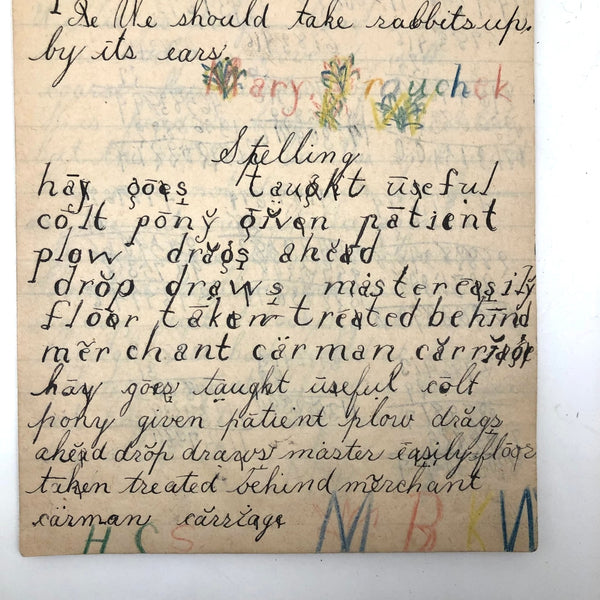 We should take rabbits up.
by its ears.
Mary
Spelling
hāy gōes taught ūseful
cōlt pōny̆ gĭven pātient
plow drăgs ahĕad
drŏp draws master easily
flōor taken treated behīnd
mẽrchant cärman cărriage
hāy gōes taught ūseful cōlt
pony given pātient plow drăgs
ahĕad drŏp draws màster ēasily flōor
tāken treated behind mẽrchant
cärman cărrĭage
H C S M B K W